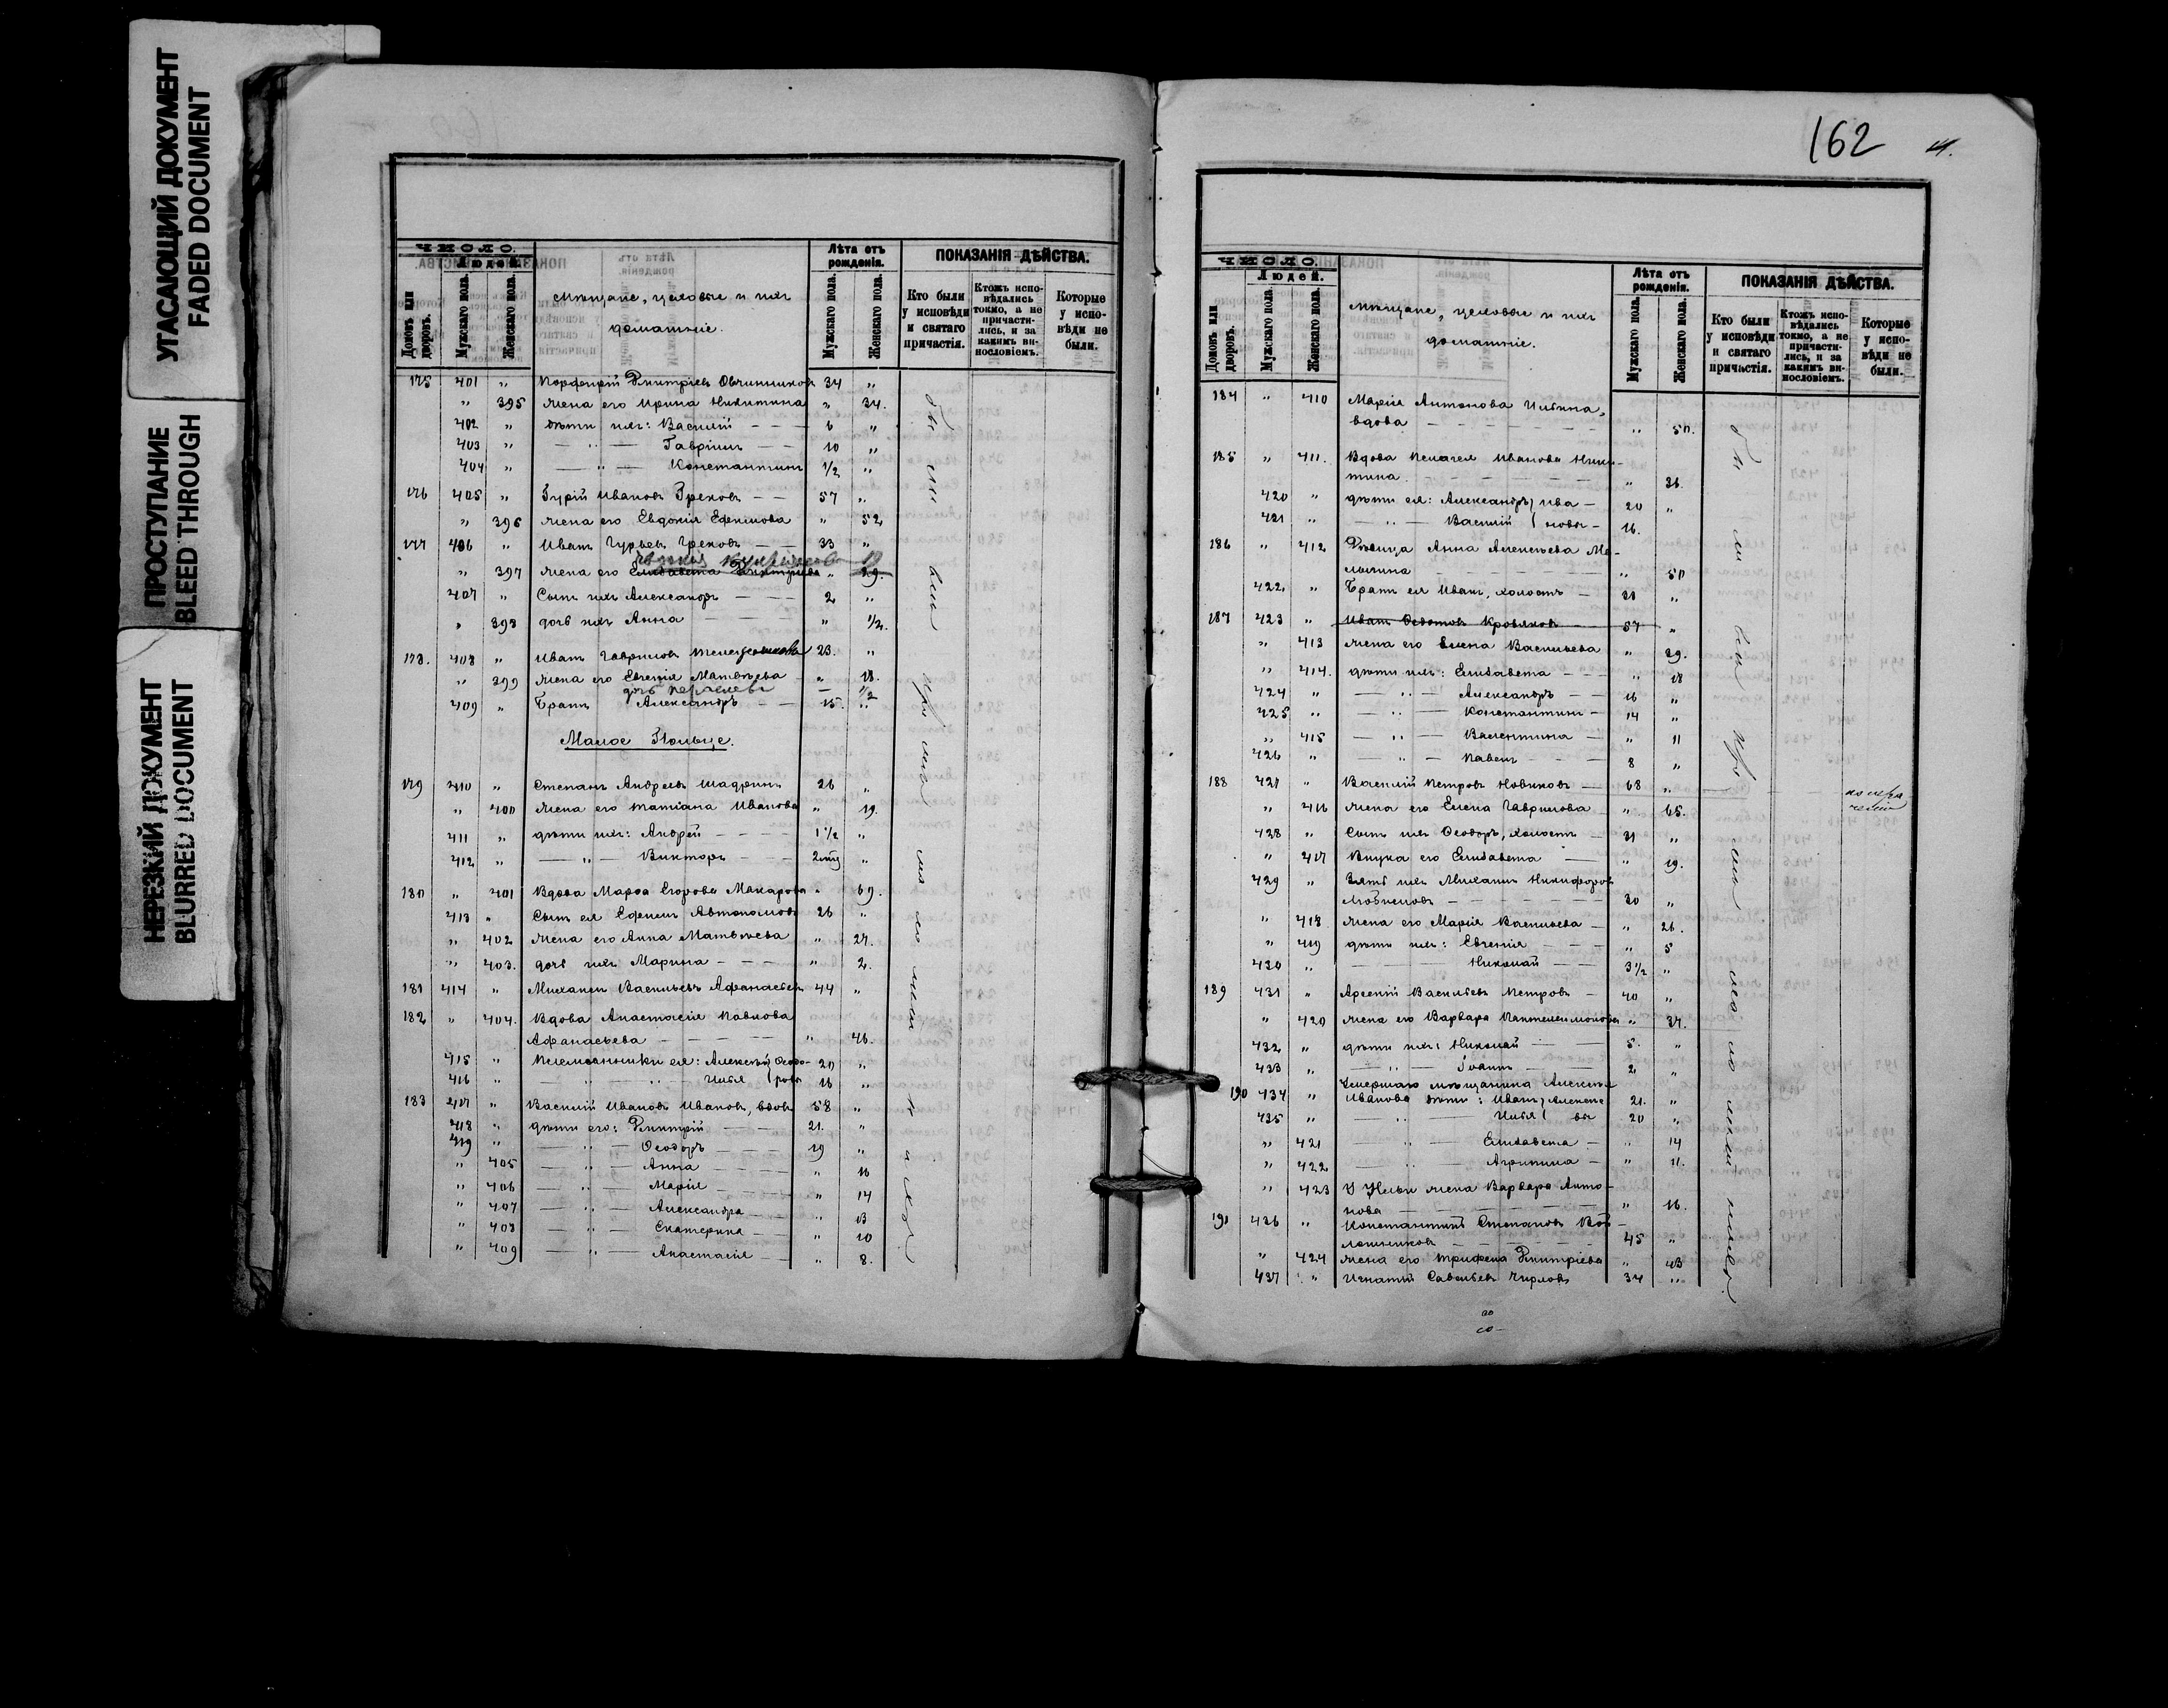 УГАСАЮЩИЙ ДОКУМЕНТ
FADED DOCUMENT
ПРОСТУПАНИЕ
BLEED THROUGH
НЕРЕЗКИЙ ДОКУМЕНТ
BLURRED DOCUMENT
ЧИСЛО.
Людей.
Домовъ или дворовъ.
Мужскаго пола.
Женскаго пола.
Мѣщане, цеховые и ихъ
домашніе.
Лѣта отъ рожденія.
Мужскаго пола.
Женскаго пола.
ПОКАЗАНІЯ ДѢЙСТВА.
Кто были у исповѣди и святаго причастія.
Ктожъ исповѣдались токмо, а не причастились, и за какимъ винословіемъ.
Которые у исповѣди не были.
175 401 " Порфирій Димитріевъ Овчинниковъ 34 "
" 395 Жена его Ирина Никитина " 34.
402 " дѣти ихъ: Василій 6 "
403 " — " — Гавріилъ 10 "
404 " — " — Константинъ 1/2 "
176 405 " Гурій Ивановъ Грековъ 57 "
" 396 Жена его Евдокія Ефимова " 52
177 406 " Иванъ Гурьевъ Грековъ 33 "
" 397 Жена его Елизавета Димитріева " 29.
407 " Сынъ ихъ Александръ 2 "
" 398 дочь ихъ Анна " 1/2.
178. 408 " Иванъ Гавриловъ 23. "
" 399 Жена его Евгенія Матвѣева " 18.
дочь 1/2
409 " Братъ Александръ 15. "
Малое Гольце.
179 410 " Степанъ Андреевъ Шадринъ 26 "
" 400 Жена его Татіана Иванова " 19.
411 " дѣти ихъ: Андрей 1 1/2 "
412 " — " — Викторъ "
180 " 401 Вдова Марѳа Егорова Макарова " 69.
413 " Сынъ ея Ефимъ Автономовъ 26 "
" 402 Жена его Анна Матвѣева " 27.
" 403. дочь ихъ Марина " 2.
181 414 " Михаилъ Васильевъ Афанасьевъ 44 "
182 " 404. Вдова Анастасія Павлова
Афанасьева " 46.
415 " Племянники ея: Алексѣй Ѳеодо- 20 "
416 " — " — " — Илья ровы 16 "
183 417 " Василій Ивановъ Ивановъ, вдовъ 58 "
418 " дѣти его: Димитрій 21. "
419 " — " — Ѳеодоръ 19 "
" 405 — " — Анна " 16
" 406 — " — Марія " 14
" 407 — " — Александра " 13
" 408 — " — Екатерина " 10
" 409 — " — Анастасія " 8.
162
ЧИСЛО.
Людей.
Домовъ или дворовъ.
Мужскаго пола.
Женскаго пола.
Мѣщане, цеховые и ихъ
домашніе.
Лѣта отъ рожденія.
Мужскаго пола.
Женскаго пола.
ПОКАЗАНІЯ ДѢЙСТВА.
Кто были у исповѣди и святаго причастія.
Ктожъ исповѣдались токмо, а не причастились, и за какимъ винословіемъ.
Которые у исповѣди не были.
184 " 410 Марія Антонова Ильина,
вдова " 50.
185 " 411. Вдова Пелагея Иванова Ники-
тина " 36.
420 " дѣти ея: Александръ Ива- 20 "
421 " — " — Василій новы 16.
186 " 412 Дѣвица Анна Алексѣева
" 50
422 " Братъ ея Иванъ, холостъ 31 "
187 423 " Иванъ Ѳедотовъ Кровяковъ 57 "
" 413 Жена его Елена Васильева " 39.
" 414. дѣти ихъ: Елизавета " 18
424 " — " — Александръ 16 "
425 " — " — Константинъ 14 "
" 415 — " — Валентина " 11
426 " — " — Павелъ 8 "
188 427 " Василій Петровъ Новиковъ 68 "
" 416 Жена его Елена Гаврилова " 65.
428 " Сынъ ихъ Ѳеодоръ, холостъ 31 "
" 417 Внука его Елизавета " 19.
429 " Зять ихъ Михаилъ Никифоровъ
Любимовъ 30 "
" 418 Жена его Марія Васильева " 26.
" 419 дѣти ихъ: Евгенія " 5
430 " Николай 3 1/2 "
189 431 " Арсеній Васильевъ Петровъ 40 "
" 420 Жена его Варвара Пантелеимонова " 37.
432 " дѣти ихъ: Николай 5. "
433 " — " — Іоаннъ 2 "
190 434 " Умершаго мѣщанина Алексѣя
Иванова дѣти: Иванъ Алексѣе- 21. "
435 " " Илья вы 20 "
" 421 — " — Елизавета " 14
" 422 — " — Агрипина " 11.
" 423 У Ильи жена Варвара Анто-
нова " 16.
191 436 " Константинъ Степановъ
45 "
" 424 Жена его Трифена Димитріева " 43
437 " Игнатій Савельевъ Чирловъ 34 "